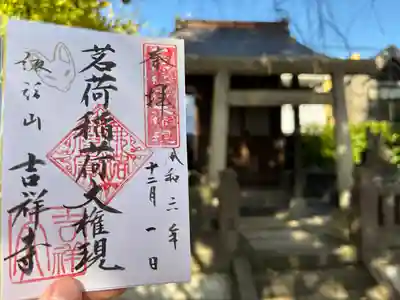 奉拝
令和二年
十二月一日
茗荷稲荷大権現
諏訪山
吉祥寺